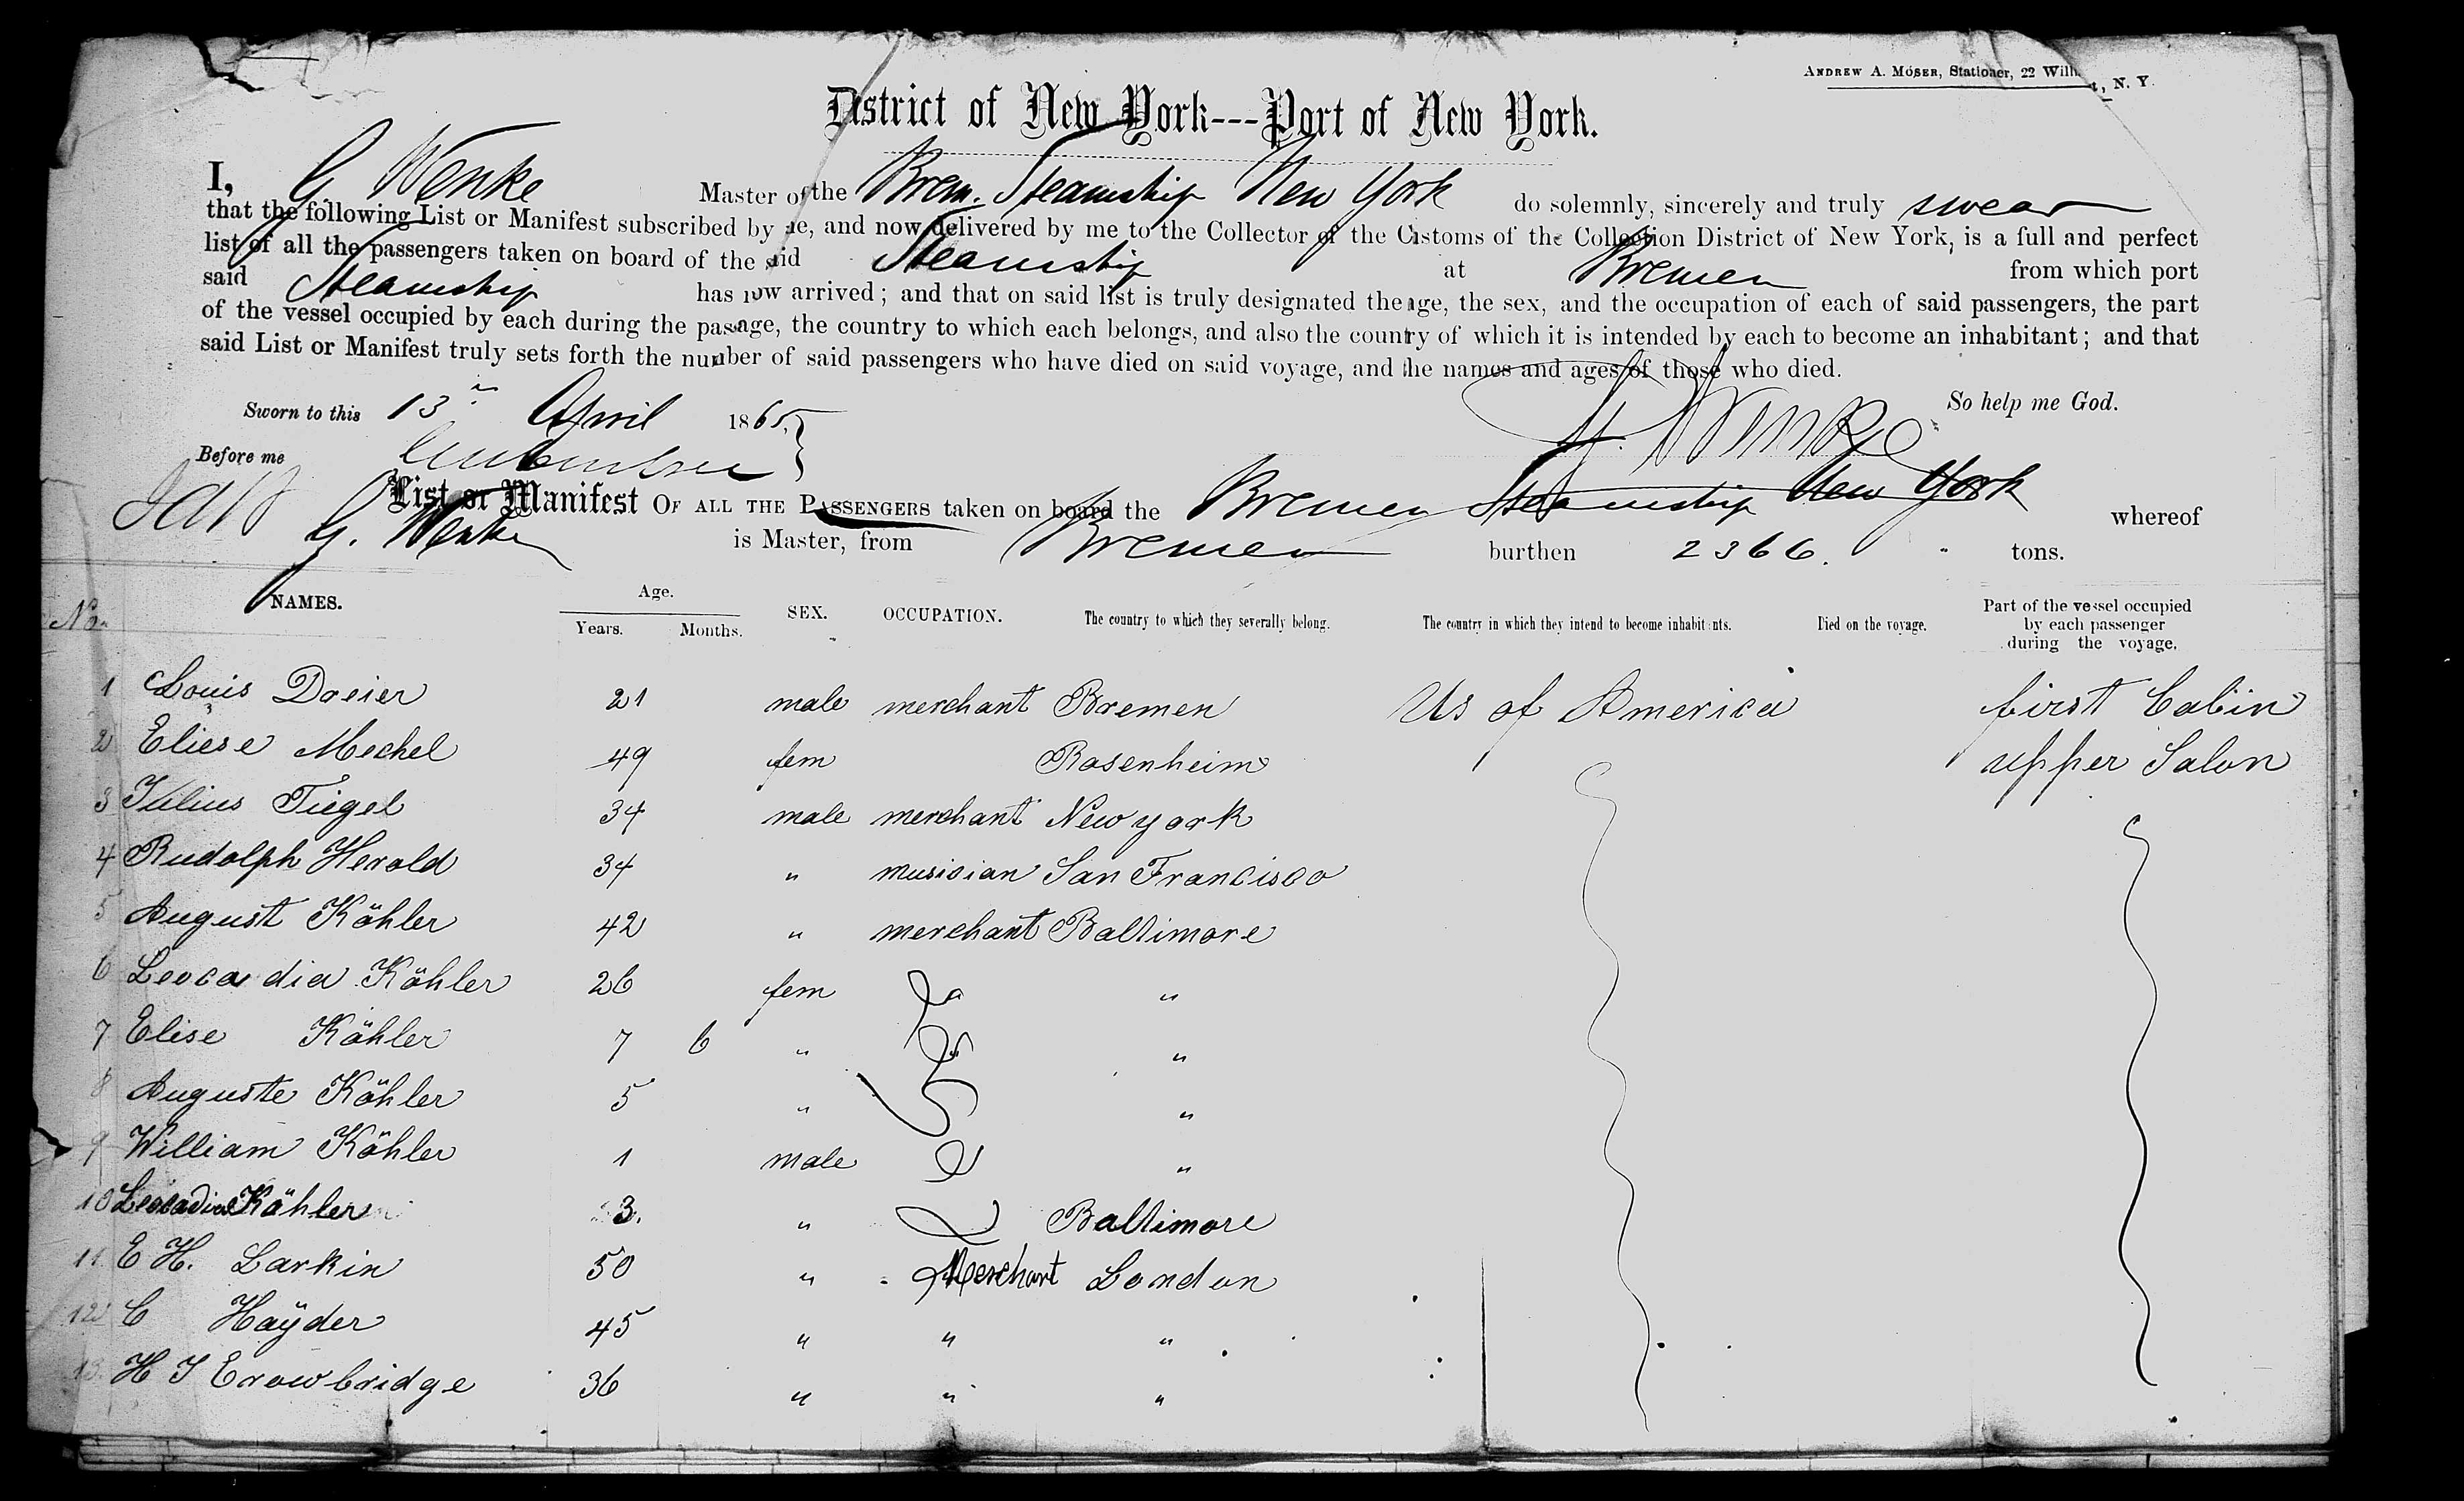 ANDREW A. MOSER, Stationer, 22 Will , N. Y.
District of New York---Port of New York.
I, G. Wenke Master of the Brem. Steamship New York do solemnly, sincerely and truly swear
that the following List or Manifest subscribed by me, and now delivered by me to the Collector of the Customs of the Collection District of New York, is a full and perfect
list of all the passengers taken on board of the said Steamship at Bremen from which port
said Steamship has now arrived; and that on said list is truly designated the age, the sex, and the occupation of each of said passengers, the part
of the vessel occupied by each during the passage, the country to which each belongs, and also the country of which it is intended by each to become an inhabitant; and that
said List or Manifest truly sets forth the number of said passengers who have died on said voyage, and the names and ages of those who died.
Sworn to this 13 April 1865. G. Wenke So help me God.
Before me
List or Manifest OF ALL THE PASSENGERS taken on board the Bremen Steamship New York whereof
G. Wenke is Master, from Bremen burthen 2366. tons.
No. NAMES. Age. Years. Months. SEX. OCCUPATION. The country to which they severally belong. The country in which they intend to become inhabitants. Died on the voyage. Part of the vessel occupied by each passenger during the voyage.
1 Louis Dreier 21 male merchant Bremen Us of America first Cabin
2 Eliese Mechel 49 fem Rosenheim upper Salon
3 Julius Tiegel 34 male merchant New york
4 Rudolph Herold 34 " musician San Francisco
5 August Köhler 42 " merchant Baltimore
6 Leocadia Köhler 26 fem "
7 Elise Köhler 7 6 " "
8 Auguste Köhler 5 " "
9 William Köhler 1 male "
10 Leocadia Köhler 3. " Baltimore
11. E H. Larkin 50 " Merchant London
12 C Haÿder 45 " " "
13. H J Erowbridge 36 " " "